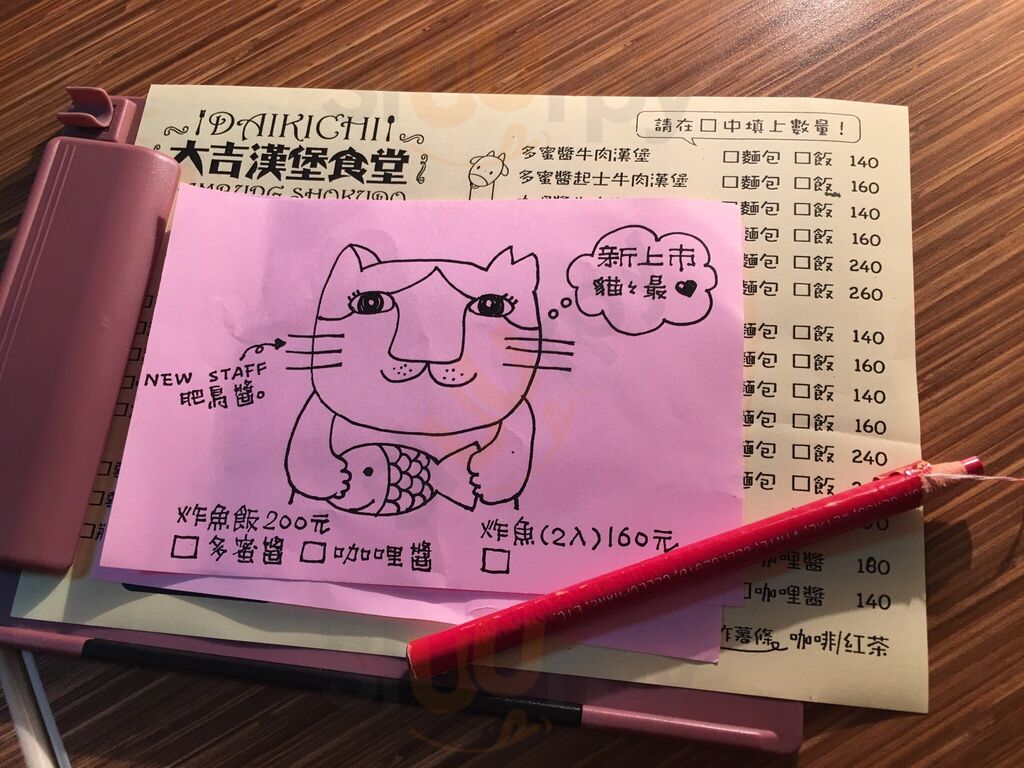 DAIKICHI
大吉漢堡食堂
請在口中填上數量!
多蜜醬牛肉漢堡 口麵包 口飯 140
多蜜醬起士牛肉漢堡 口麵包 口飯 160
麵包 口飯 140
麵包 口飯 160
麵包 口飯 240
麵包 口飯 260
麵包 口飯 140
麵包 口飯 160
麵包 口飯 140
麵包 口飯 160
麵包 口飯 240
麵包 口飯
咖哩醬 180
口咖哩醬 140
炸薯條 咖啡/紅茶
新上市
貓々最♥
NEW STAFF
肥鳥醬。
炸魚飯200元
口多蜜醬 口咖哩醬
炸魚(2入)160元
口